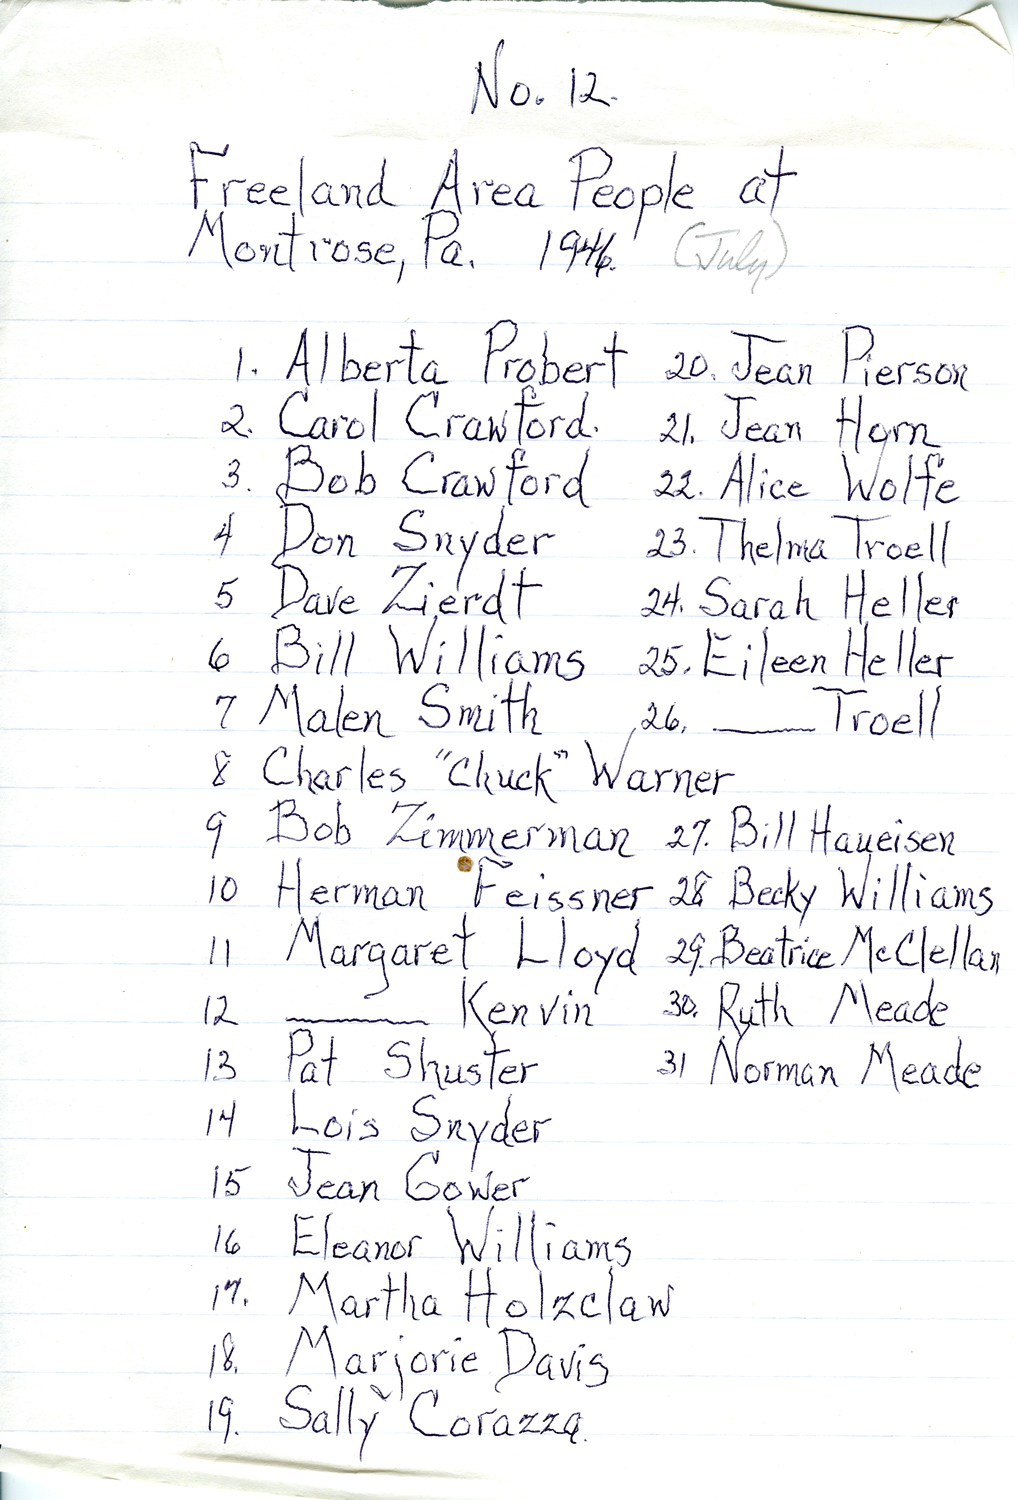 No. 12.
Freeland Area People at
Montrose, Pa. 1946. (July)
1. Alberta Probert
2. Carol Crawford.
3. Bob Crawford
4 Don Snyder
5 Dave Zierdt
6 Bill Williams
7 Malen Smith
8 Charles "Chuck" Warner
9 Bob Zimmerman
10 Herman Feissner
11 Margaret Lloyd
12 ______ Kenvin
13 Pat Shuster
14 Lois Snyder
15 Jean Gower
16 Eleanor Williams
17. Martha Holzclaw
18. Marjorie Davis
19. Sally Corazza.
20. Jean Pierson
21. Jean Horn
22. Alice Wolfe
23. Thelma Troell
24. Sarah Heller
25. Eileen Heller
26. ______ Troell
27. Bill Haueisen
28 Becky Williams
29. Beatrice McClellan
30. Ruth Meade
31 Norman Meade